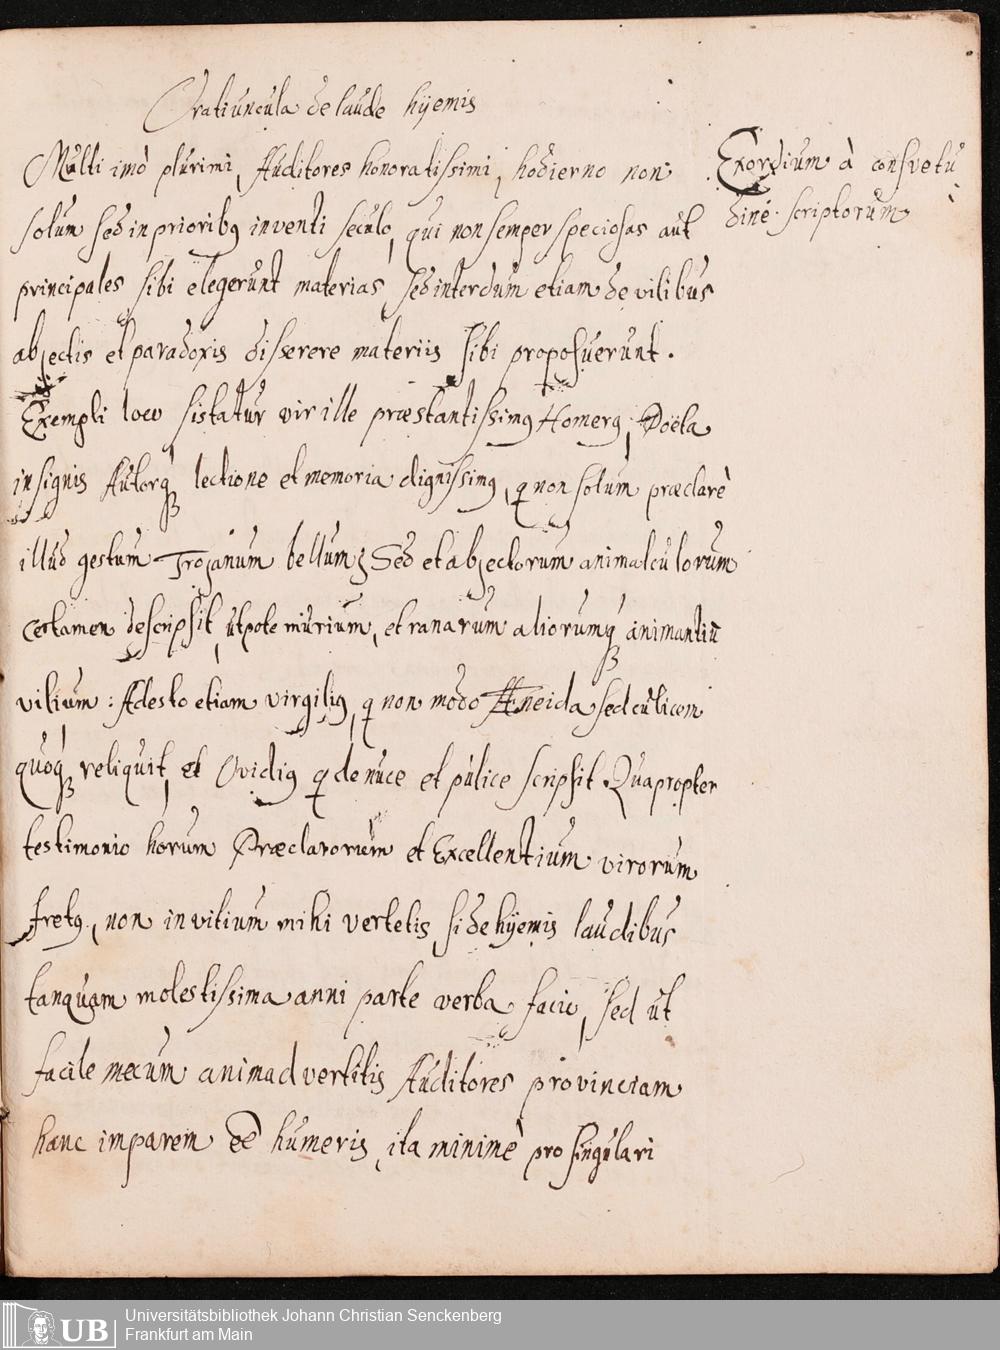 Oratiuncula de laude hÿemis
Multi imò plurimi, Auditores honoratissimi, hodierno non
solum sed in priorib9 inventi seculo, qui non semper speciosas aut
principales sibi elegerunt materias, sed interdum etiam de vilibus
abjectis et paradoxis disserere materiis sibi proposuerunt.
Exempli loco sistatur vir ille præstantissim9 Homer9, Poëta
insignis Autorq lectione et memoria dignissim9, q non solum præclarè
illud gestum Trojanum bellum; Sed et abjectorum animalculorum
certamen descripsit, utpote murium, et ranarum aliorumq animantiū
vilium: Adesto etiam virgili9, q non modo Æneida sed culicem
quoq reliquit, et Ovidi9 q de nuce et pulice scripsit Quapropter
testimonio horum Præclarorum et Excellentium virorum
fret9, non in vitium mihi vertetis si de hÿemis laudibus
tanquam molestissima anni parte verba facio, sed ut
facile mecum animadvertitis Auditores provinciam
hanc imparem eē humeris, ita minimè pro singulari
Exordium à consvetu
dine scriptorum
Universitätsbibliothek Johann Christian Senckenberg
Frankfurt am Main
UB